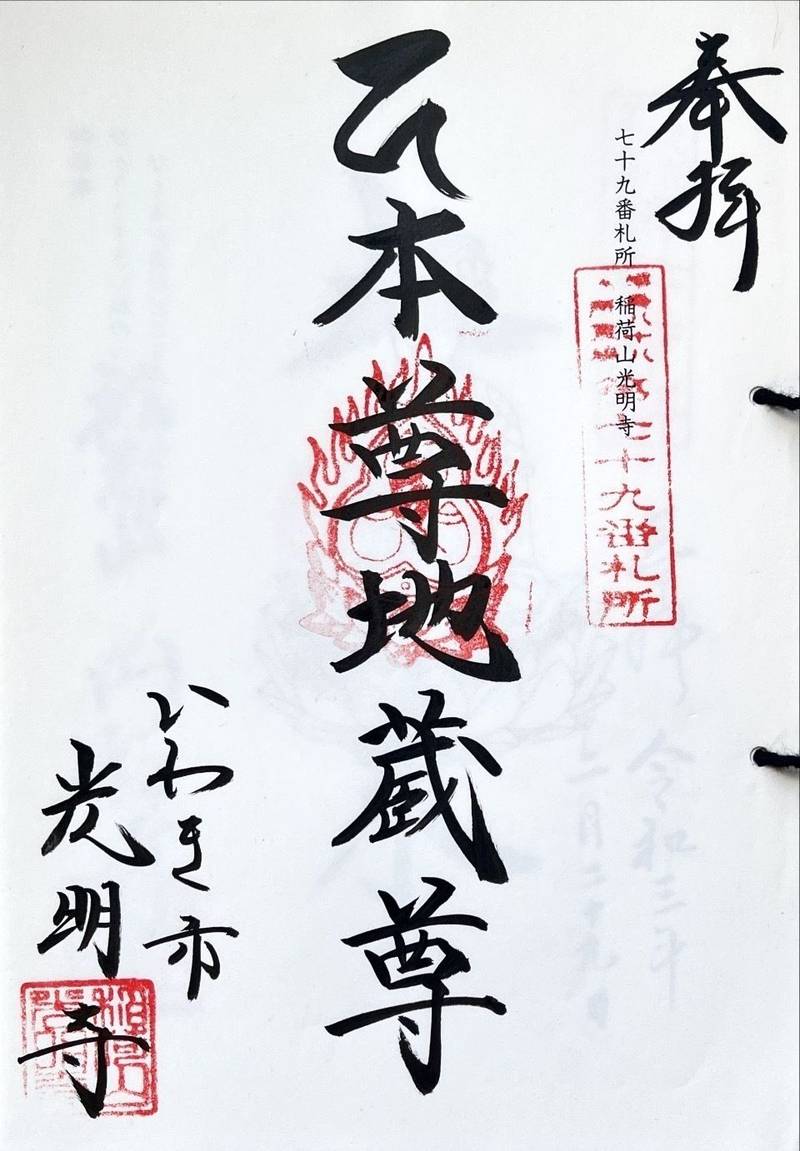 奉拝
七十九番札所　稲荷山光明寺
七十九番札所
本尊地蔵尊
いわき市
光明寺
令和三年
二月二十九日